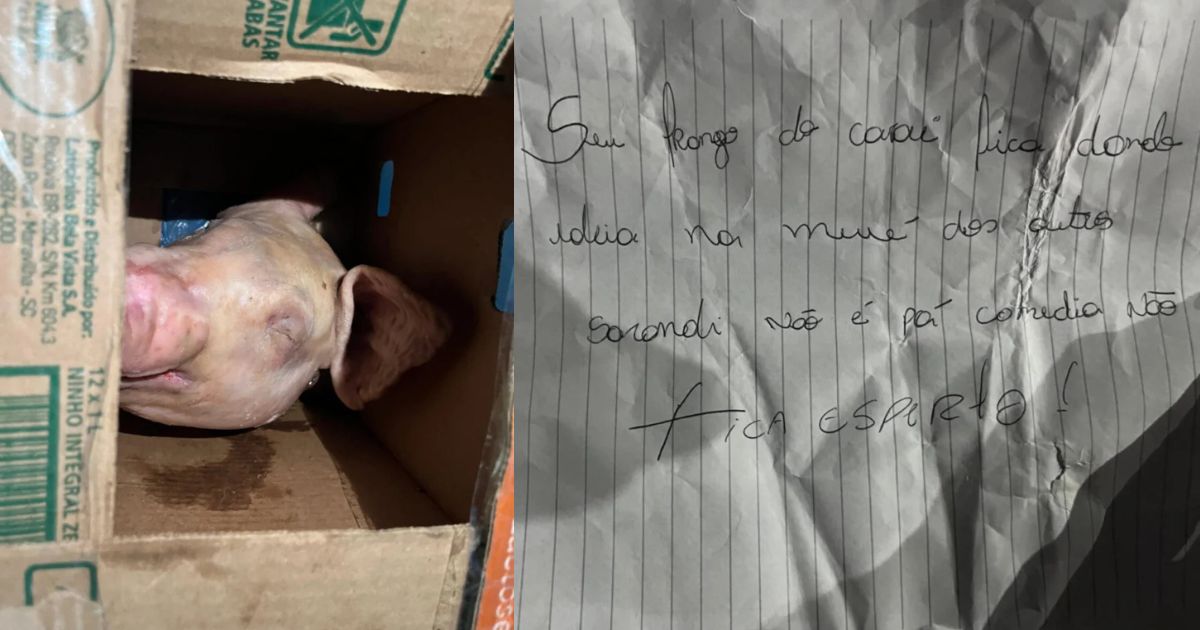 VANTAR
ABAS
Produzido e Distribuído por:
Laticínios Bela Vista S.A.
Rodovia BR-282, S/N, Km 604,3
Zona Rural - Maravilha - SC
89874-000
12 x 1 L
NINHO INTEGRAL ZE
Seu frango do carai fica dando
ideia na muié dos outros
sarandi não é pá comedia não
FICA ESPERTO!